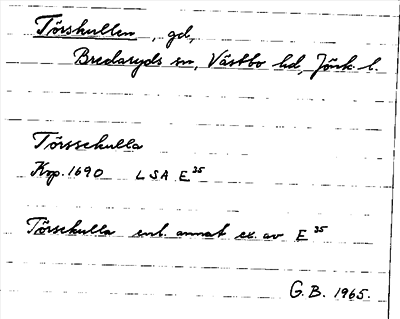 Törskullen, gd,
Bredaryds sn, Västbo hd, Jönk. l.
Törsschulla
Kop. 1690 LSA E 25
Törschulla enl. annat ex. av E 25
G. B. 1965.